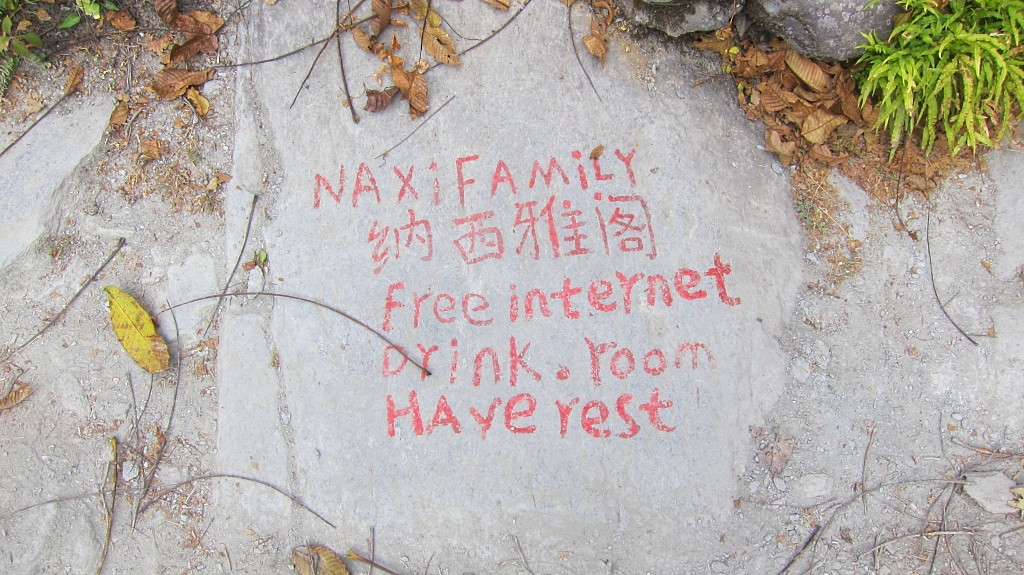 NAXiFAMiLY
纳西雅阁
Free internet
Drink. room
HAve rest